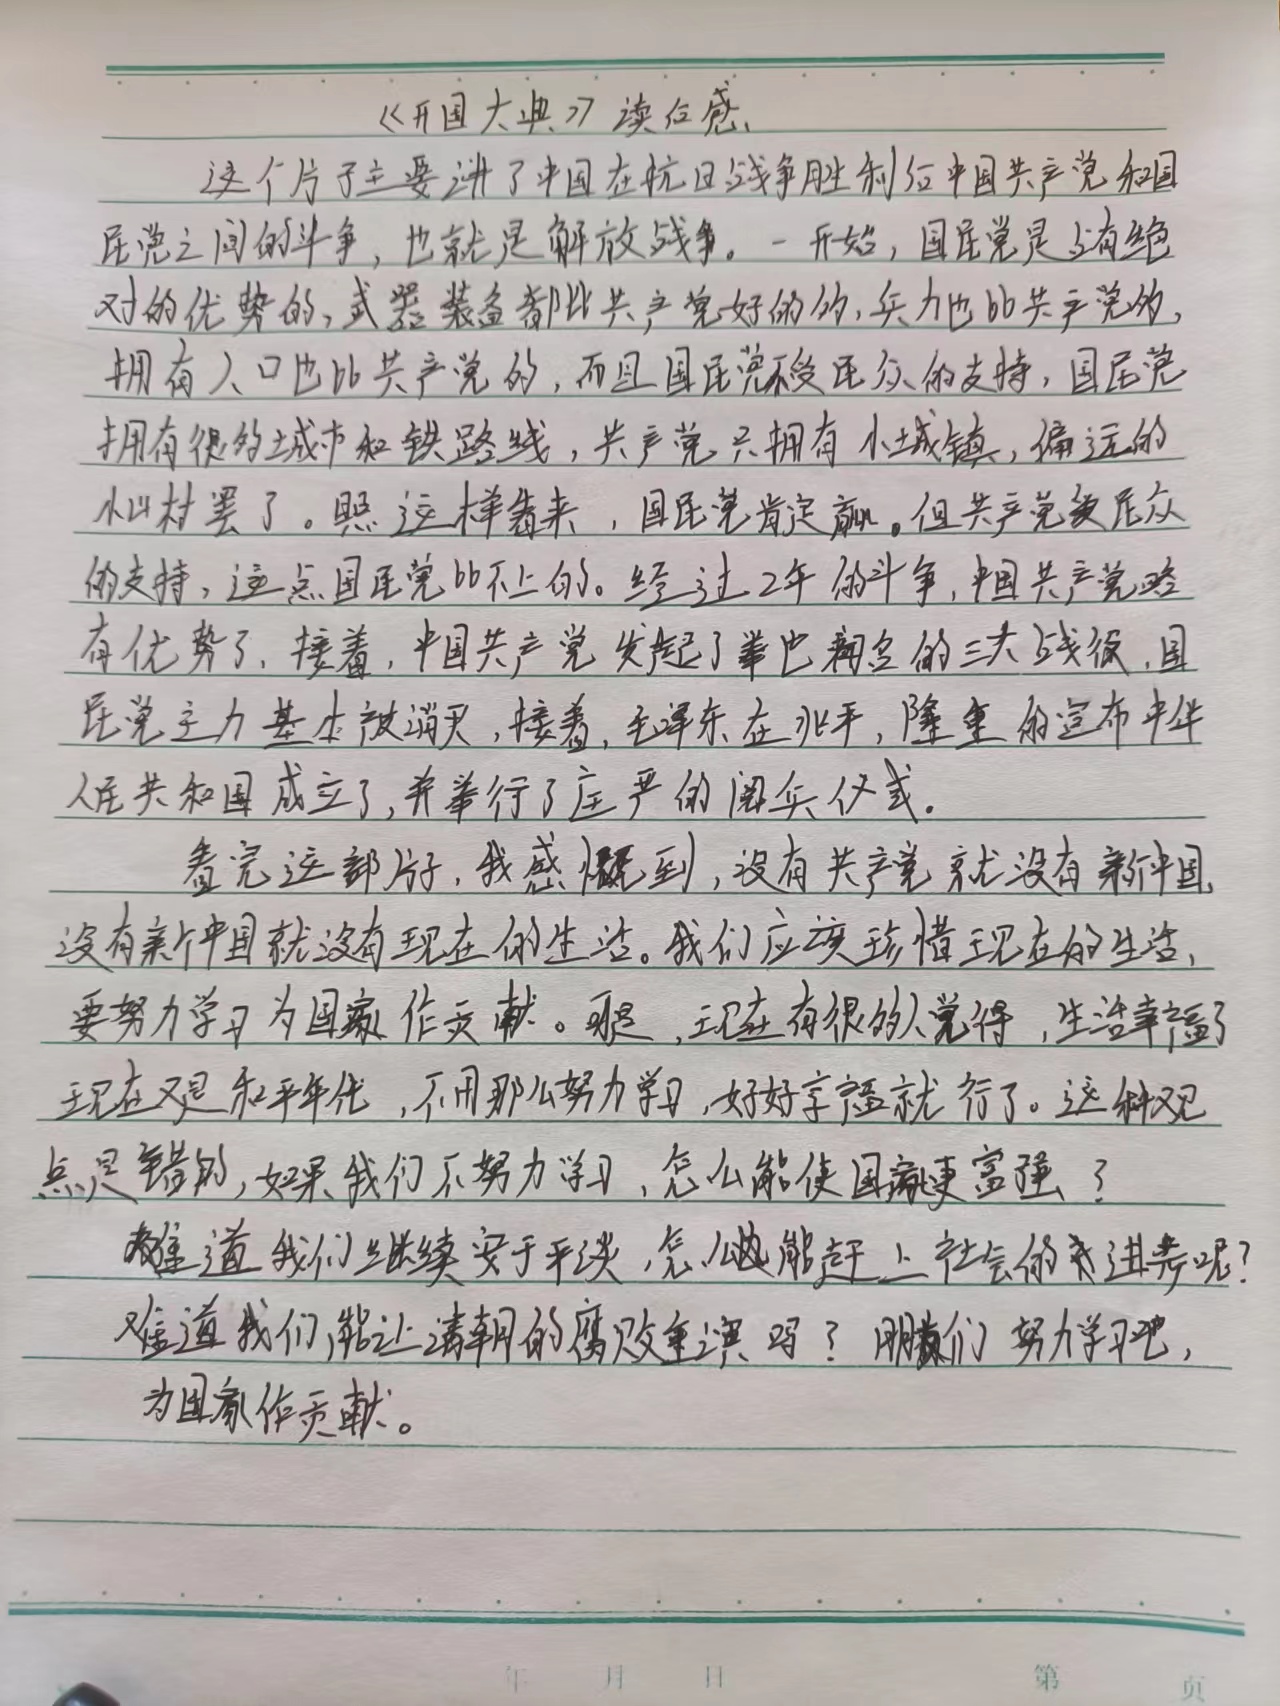 《开国大典》读后感
这个片子主要讲了中国在抗日战争胜利后中国共产党和国
民党之间的斗争,也就是解放战争。一开始,国民党是占有绝
对的优势的,武器装备都比共产党好的的,兵力也比共产党的,
拥有人口也比共产党的,而且国民党不受民众的支持,国民党
拥有很的城市和铁路线,共产党只拥有小城镇,偏远的
小山村罢了。照这样看来,国民党肯定赢。但共产党受民众
的支持,这点国民党比不上的。经过2年的斗争,中国共产党略
有优势了,接着,中国共产党发起了举世闻名的三大战役,国
民党主力基本被消灭,接着,毛泽东在北平,隆重的宣布中华
人民共和国成立了,并举行了庄严的阅兵仪式。
看完这部片子,我感慨到,没有共产党就没有新中国,
没有新中国就没有现在的生活。我们应该珍惜现在的生活,
要努力学习为国家作贡献。可是,现在有很的人觉得,生活幸福了
现在又是和平年代,不用那么努力学习,好好享福就行了。这种观
点是错的,如果我们不努力学习,怎么能使国家更富强?
难道我们继续安于平淡,怎么能赶上社会的进步呢?
难道我们能让清朝的腐败重演吗?朋友们努力学习吧,
为国家作贡献。
年 月 日
第 页